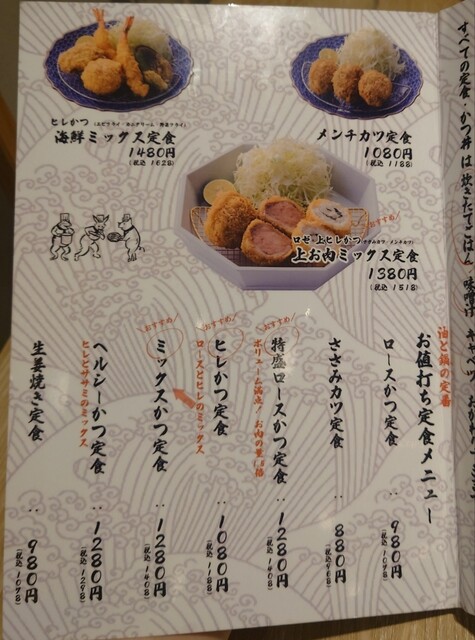 ヒレかつ
海鮮ミックス定食
1480円
(税込 1628)
メンチカツ定食
1080円
(税込 1188)
おすすめ
ロゼ・上ヒレかつ
上お肉ミックス定食
1380円
(税込 1518)
すべての定食・かつ丼は炊きたてごはん
油と鍋の定番
お値打ち定食メニュー
ロースかつ定食 : 980円
(税込 1078)
ささみカツ定食 : 880円
(税込 968)
おすすめ
特盛ロースかつ定食 : 1280円
(税込 1408)
ボリューム満点!お肉の量1.5倍
おすすめ
ヒレかつ定食 : 1080円
(税込 1188)
ロースとヒレのミックス
おすすめ
ミックスかつ定食 : 1280円
(税込 1408)
ヘルシーかつ定食 : 1280円
ヒレとササミのミックス
生姜焼き定食 : 980円
(税込 1078)